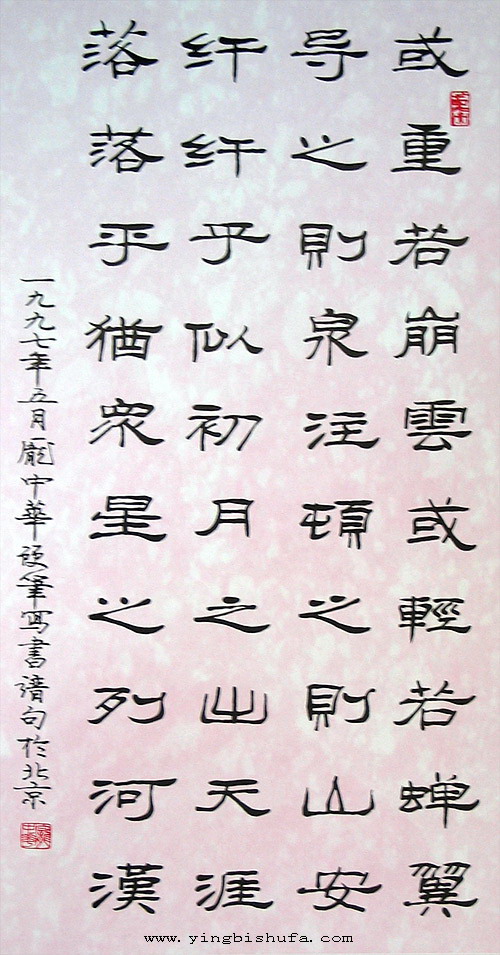 或重若崩雲或輕若蝉翼
导之則泉注頓之則山安
纤纤乎似初月之出天涯
落落乎猶衆星之列河漢
一九九七年五月龐中華硬筆寫書譜句於北京
www.yingbishufa.com